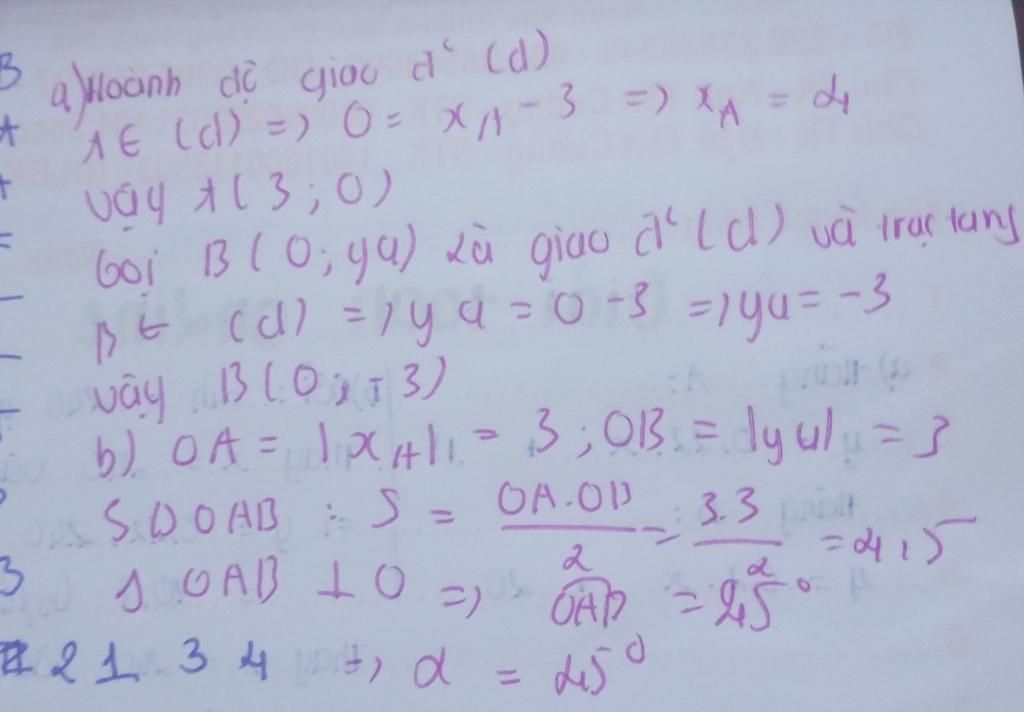 a) Hoành độ giao đ² (d)
A ∈ (d) => 0 = xA - 3 => xA = 4
vậy A(3; 0)
Gọi B(0; yu) là giao đ² (d) và trục tung
B ∈ (d) => yu = 0 - 3 => yu = -3
vậy B(0; -3)
b) OA = |xA| = 3; OB = |yu| = 3
S Δ OAB : S = OA.OB/2 = 3.3/2 = 4,5
Δ OAB ⊥ O => OAB = 45°
2 1 3 4 => α = 45°